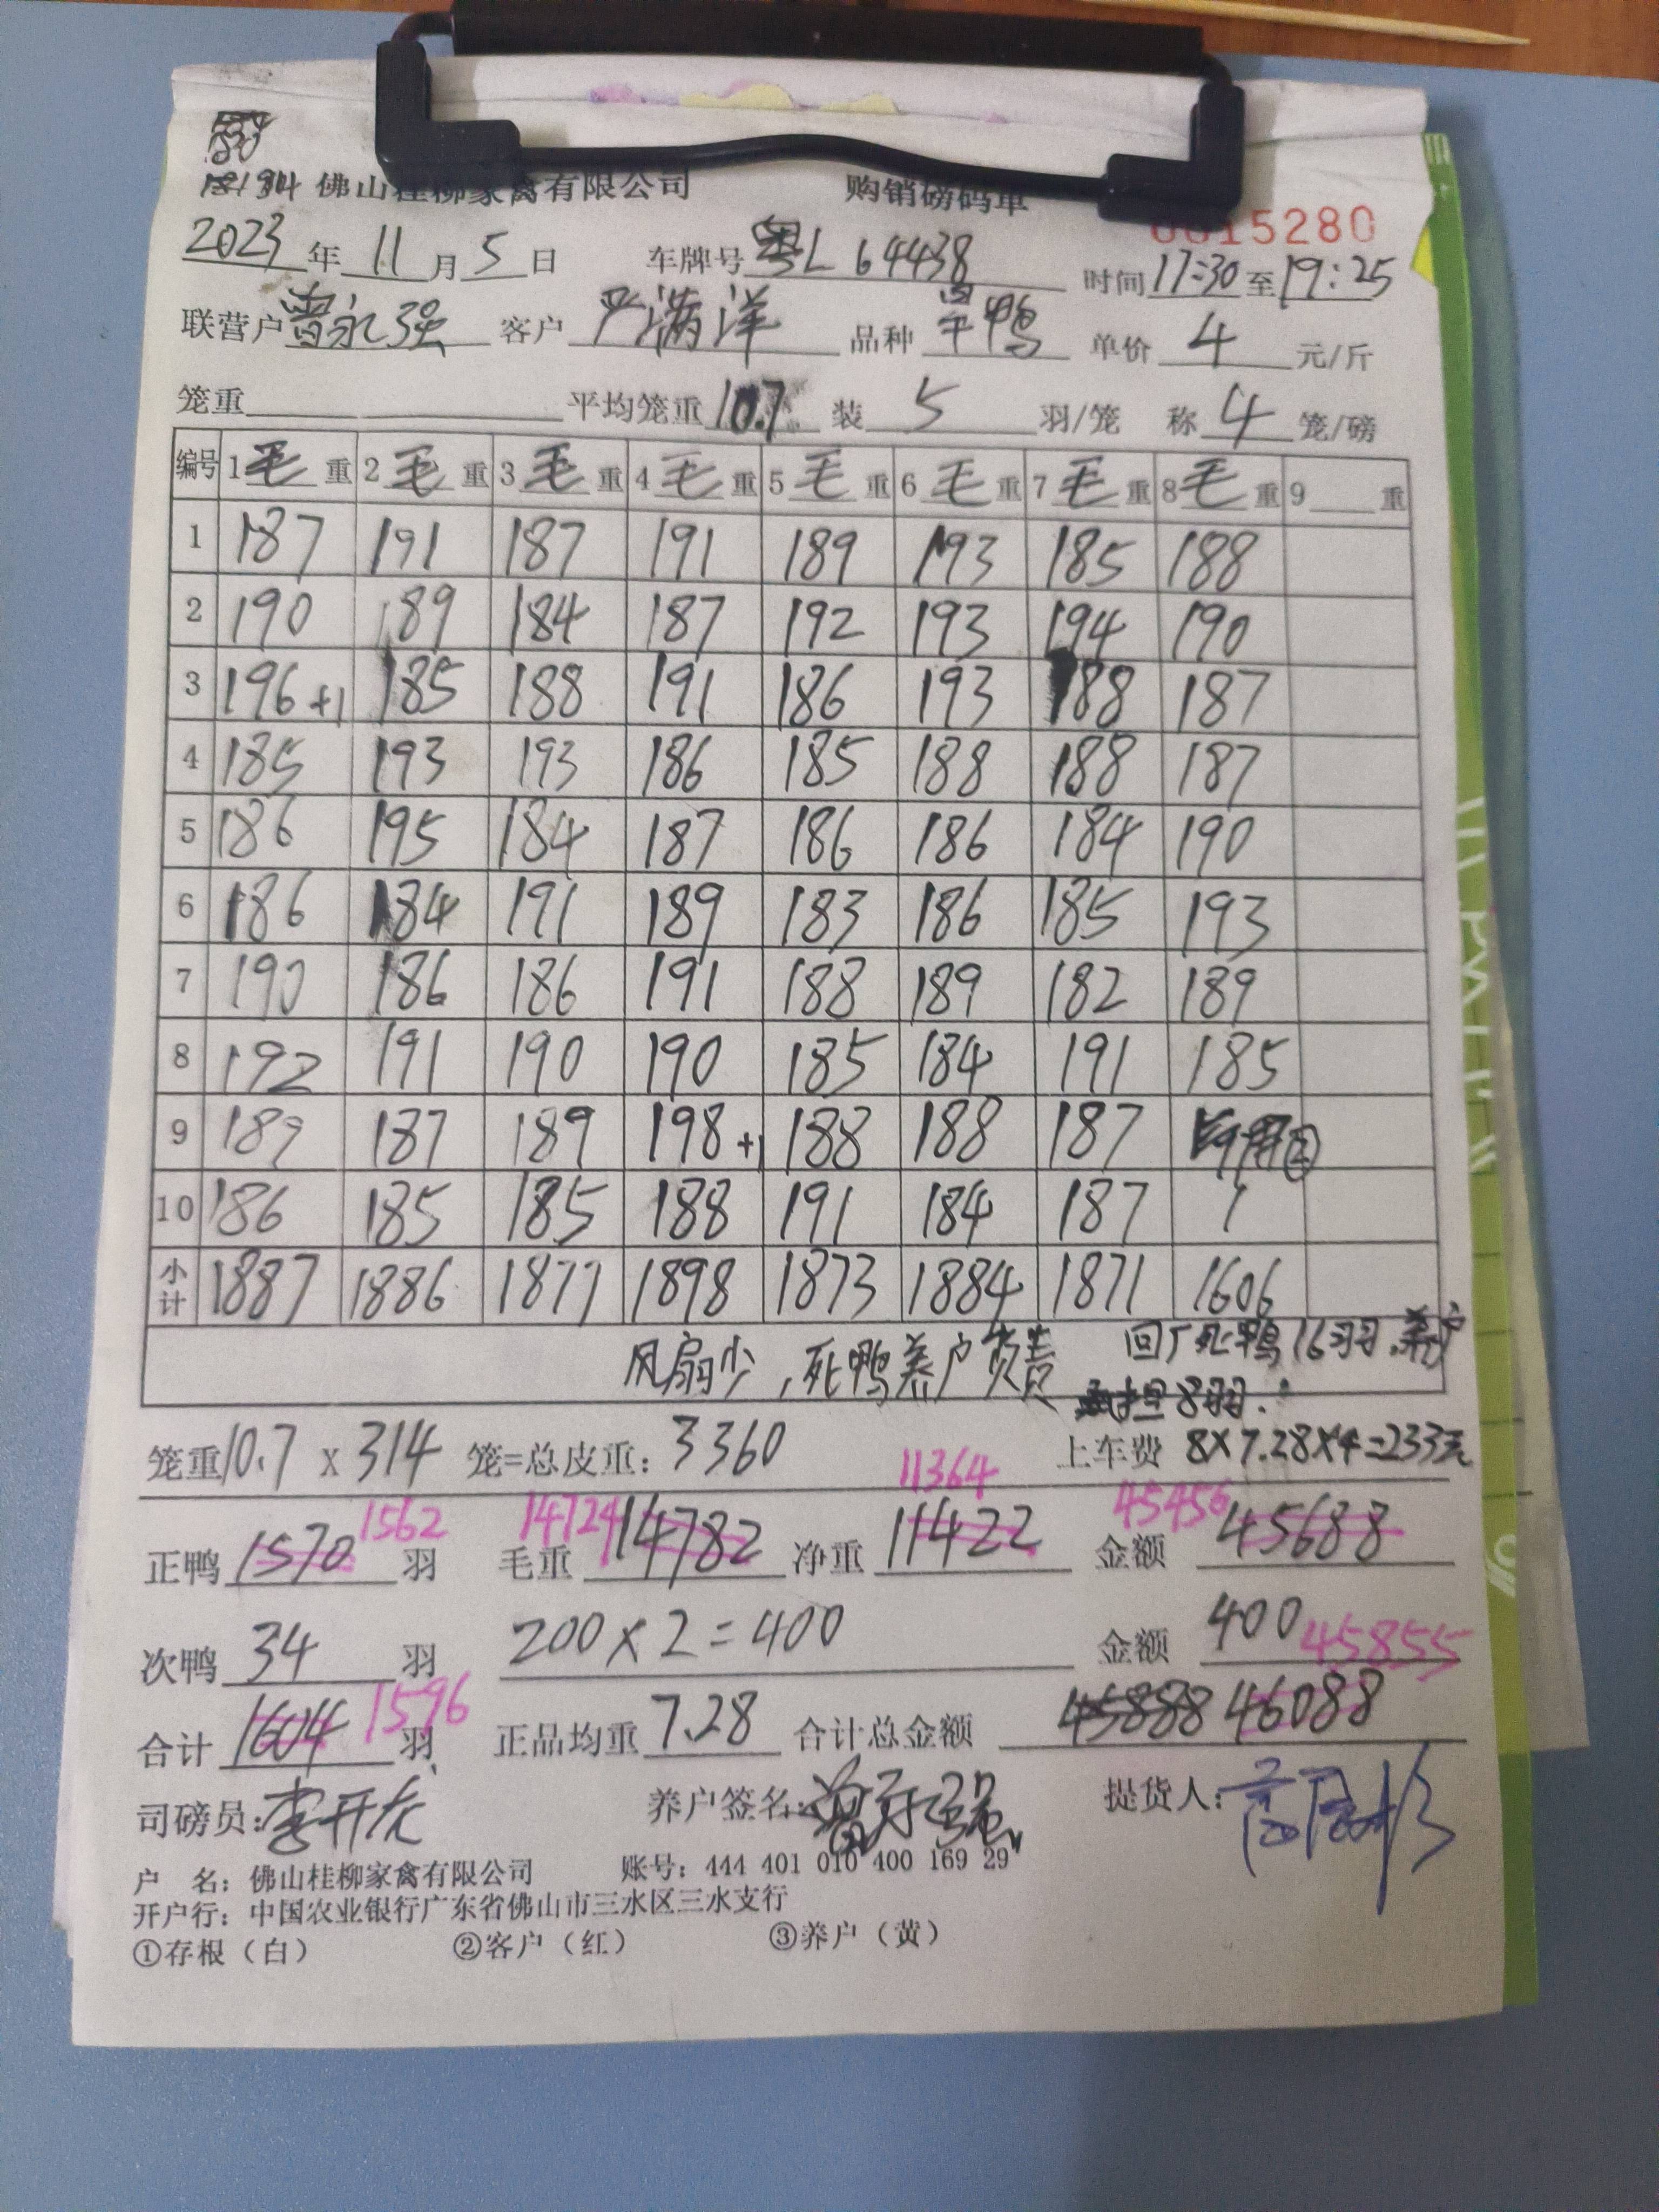 18194 佛山桂柳家禽有限公司 购销磅码单
0015280
2023年11月5日 车牌号粤L 64438 时间17:30至19:25
联营户曾永强 客户 严满洋 品种 旱鸭 单价 4 元/斤
笼重 平均笼重10.7 装 5 羽/笼 称 4 笼/磅
编号 1毛重 2毛重 3毛重 4毛重 5毛重 6毛重 7毛重 8毛重 9 重
1 187 191 187 191 189 193 185 188
2 190 189 184 187 192 193 194 190
3 196+1 185 188 191 186 193 188 187
4 185 193 193 186 185 188 188 187
5 186 195 184 187 186 186 184 190
6 186 184 191 189 183 186 185 193
7 190 186 186 191 188 189 182 189
8 192 191 190 190 185 184 191 185
9 189 187 189 198+1 188 188 187
10 186 185 185 188 191 184 187 1
小计 1887 1886 1877 1898 1873 1884 1871 1606
风扇少,死鸭养户负责 回厂死鸭16羽,养户
承担8羽.
笼重10.7 x 314 笼=总皮重:3360 上车费 8×7.28×4=233元
1562 14724 11364 45456
正鸭 1570 羽 毛重 14782 净重 11422 金额 45688
次鸭 34 羽 200 x 2=400 金额 400 45855
合计 1604 1596 羽 正品均重 7.28 合计总金额 45888 46088
司磅员:李开龙 养户签名:曾永强 提货人:
户 名:佛山桂柳家禽有限公司 账号:444 401 010 400 169 29
开户行:中国农业银行广东省佛山市三水区三水支行
①存根(白) ②客户(红) ③养户(黄)